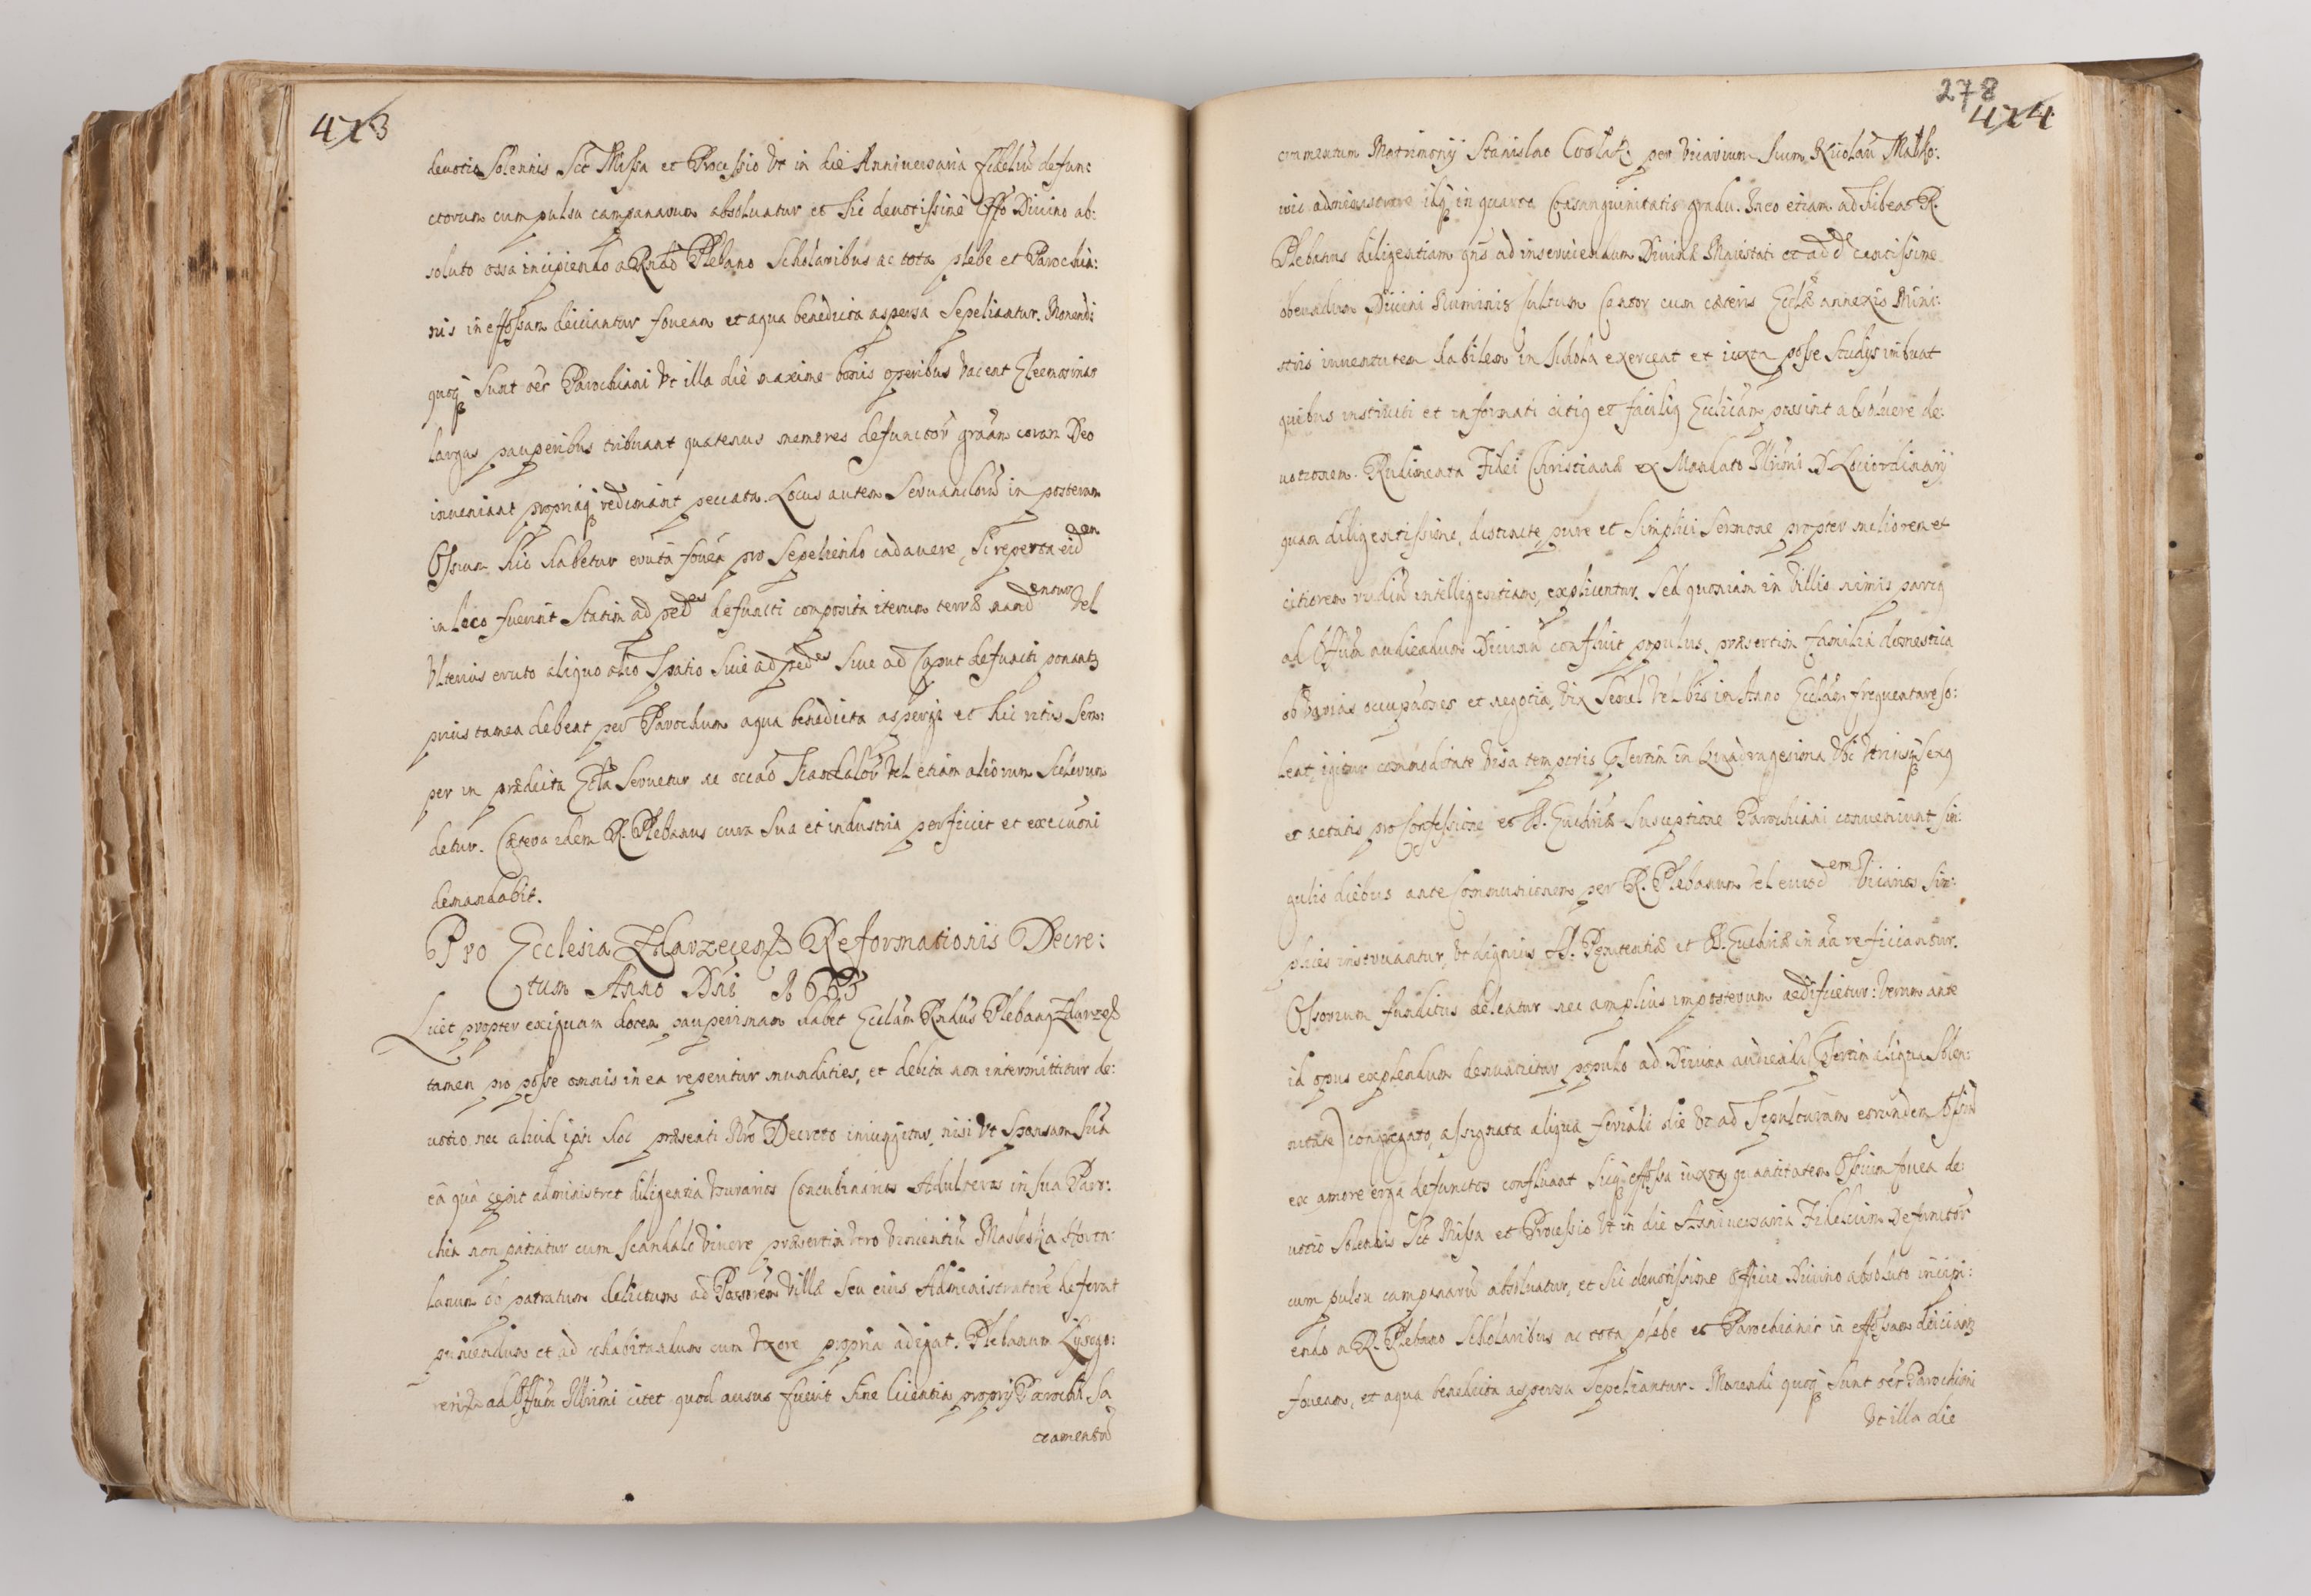 413
deuotio Solennis Sct Missa et Processio Vt in die Anniuersaria fidelium defun:
ctorum cum pulsu campanarum absoluatur et Sic deuotissine Offo Diuino ab:
soluto ossa incipiendo a Rndo Plebano Scholaribus ac tota plebe et Parochia:
nis in effossam deiiciantur foueam et aqua benedicta aspersa Sepeliantur. Monendi
quoq Sunt oēs Parochiani Vt illa die maxime bonis operibus vacent Eleemosinas
largas pauperibus tribuant quatenus memores defunctorū grām coram Deo
inueniant propriaq redimant peccata. Locus autem Seruandorū in posterum
Ossium hic habetur eruta fouea pro Sepeliendo cadauere, Si reperta eidem
in loco fuerint Statim ad pedes defuncti composita iterum terræ mandentur Vel
Vlterius eruto aliquo alio Spatio Siue ad pedes Siue ad Caput defuncti ponantur
prius tamen debent per Parochum aqua benedicta aspergi et hic ritus Sem:
per in prædicta Ecclā Seruetur ne occāo Scandalorū Vel etiam aliorum Scelerum
detur. Cætera idem R. Plebanus cura Sua et industria perficiet et executioni
demandabit.
Pro Ecclesia Zdarzecens Reformationis Decre:
tum Anno Dni
Licet propter exiguam dotem pauperimam habet Ecclām Rndus Plebanus Zdarzec
tamen pro posse omnis in ea reperitur mundities, et debita non intermittitur de:
uotio nec aliud ipsi hoc præsenti Nro Decreto iniungitur, nisi Vt Sponsam Suā
eā quā cepit administret diligentia Vsurarios Concubinarios Adulteros in sua Paro:
chia non patiatur cum scandalo Viuere præsertim Vero Vincentiū Masleska Horta:
lanum ob patratum delictum ad Possorem Villæ Seu eius Administratorē deferat
puniendum et ad cohabitandum cum Vxore propria adigat. Plebanum Lysogo:
ad Offum Illrimi citet quod ausus fuerit Sine licentia proprij Parochi Sa
cramentū
278
414
cramentum Matrimonij Stanislao per Vicarium Suum Nicolaū Matko:
wic administrare idq in quarto Consanguinitatis gradu. In eo etiam adhibeat R.
Plebanus diligentiam qns ad inseruiendum Diuinæ Maiestati et ad castissime
obeundum Diuini Numinis cultum Cantor cum cæteris Ecclæ annexis Mini:
stris iuuentutem habilem in Schola exerceat et iuxta posse Studijs imbuat
quibus instituti et informati citiq et faciliq Ecclicam possint absoluere de:
uotionem. Rudimenta Fidei Christianæ ex Mandato Illrimi D. Lociordinarij
quam diligentissime, distincte, pure et Simplici Sermone propter meliorem et
citiorem rudiū intelligentiam, explicentur. Sed quoniam in Villis nimis parcq
ad Offum audiendum Diuinū confluit populus, præsertim familia domestica
ob Varias occupāoēs et negotia, Vix Semel Vel bis in Anno Ecclām frequentare so:
lent, igitur commoditate Visa temporis Psertim in Quadragesima Vbi Vtriusq sexq
et aetatis pro Confessione et S. Euchriæ Susceptione Parochiani conueniunt Sin:
gulis diebus ante Communionem per R. Plebanum Vel eiusdem Vicarios Sim:
plices instruantur, Vt dignius S. Pænitentiæ et S. Euchriæ in aā reficiantur.
Ossorium funditus deleatur nec amplius imposterum aedificietur: Verum ante
id opus explendum denuncietur populo ad Diuina audienda (Psertim aliqua Solen:
nitate) congregato, assignata aliqua feriali die Vt ad Sepulturam eorundem Ossiū
ex amore erga defunctos confluant Sicq effossa iuxta quantitatem Ossium fouea de:
uotio Solennis Sct Missa et Processio Vt in die Anniuersaria Fidelium Defunctorū
cum pulsu campanarū absoluatur, et Sic deuotissime Officio Diuino absoluto incipi:
endo a R. Plebano Scholaribus ac tota plebe et Parochianis in effossam deiiciantur
foueam, et aqua benedicta aspersa Sepeliantur. Monendi quoq Sunt oēs Parochiani
Vt illa die